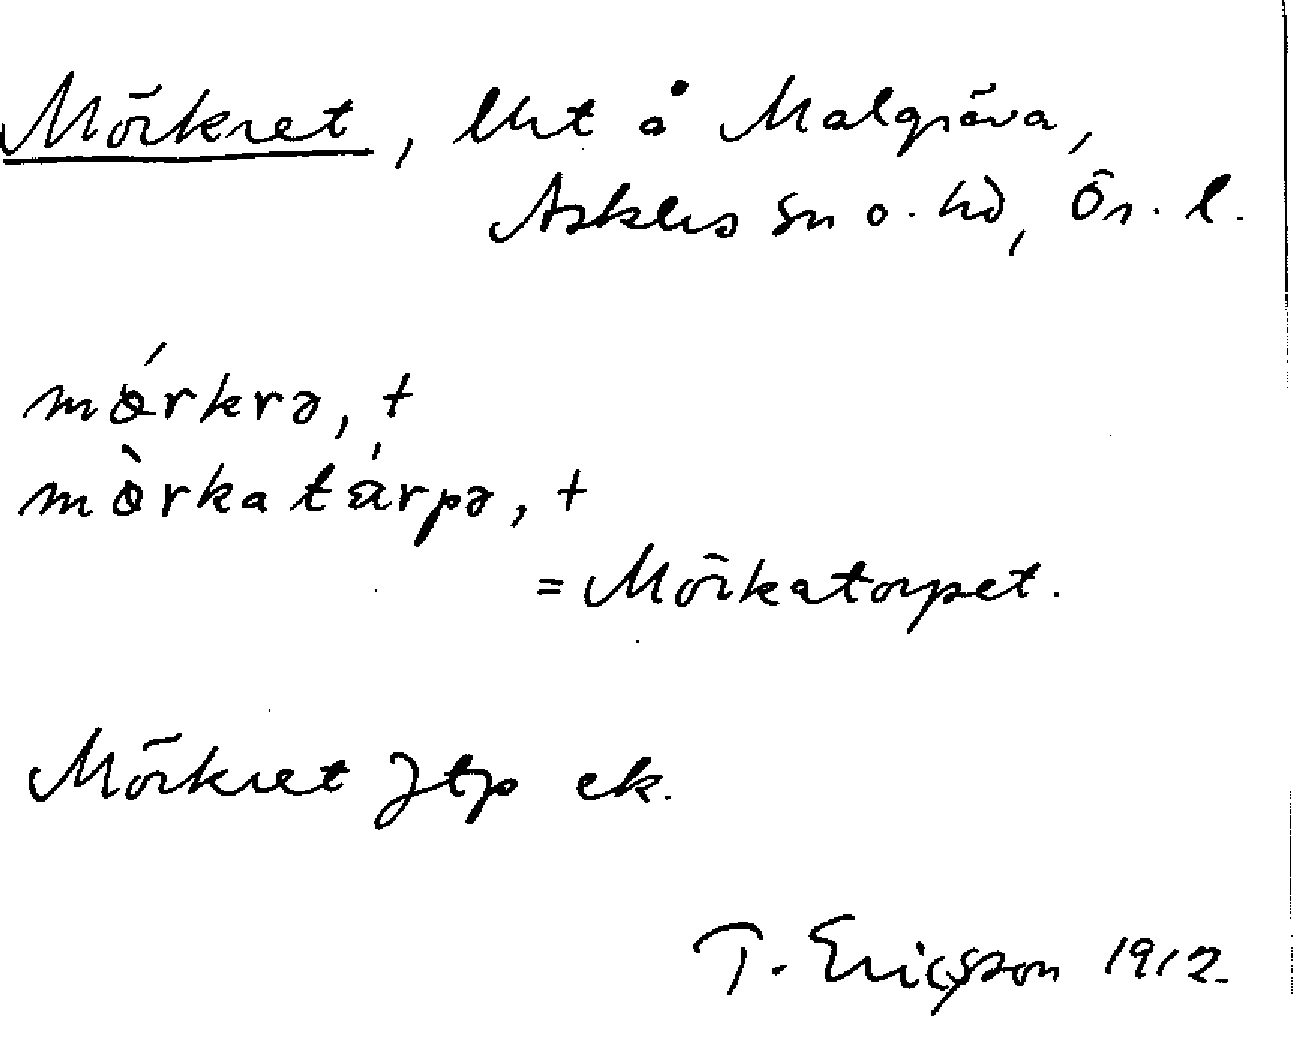 Mörkret, lht å Malgräva,
Askers sn o. hd, Ör. l.
mǿrkrə, +
mø̀rkatárpə, +
= Mörkatorpet.
Mörkret Jtp ek.
T. Ericsson 1912.